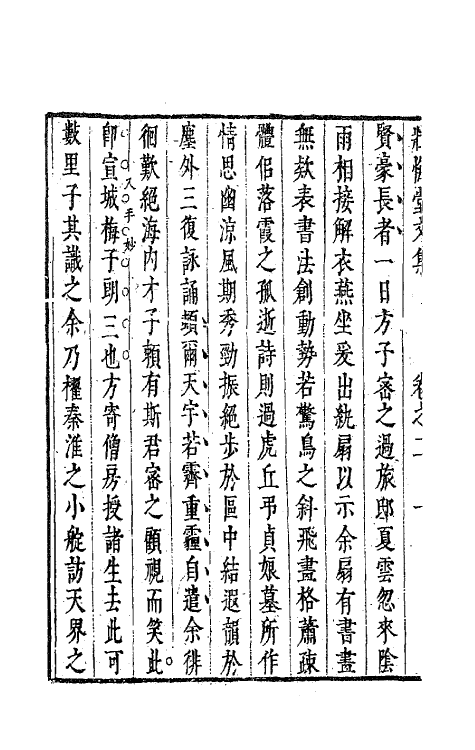 賢豪長者一日方子密之過旅邸夏雲忽來陰
雨相接解衣燕坐爰出紈扇以示余扇有書畫
無欵表書法創動勢若驚鳥之斜飛畫格蕭疎
體侶落霞之孤逝詩則過虎丘弔貞娘墓所作
情思幽涼風期秀勁振絕步於區中結遐韻於
塵外三復詠誦頓爾天宇若霽重霾自遣余徘
徊歎絕海内才子顧有斯君密之顧視而笑此
卽宣城梅子朗三也方寄僧房授諸生去此可
又手妙
數里子其識之余乃櫂秦淮之小艇訪天界之